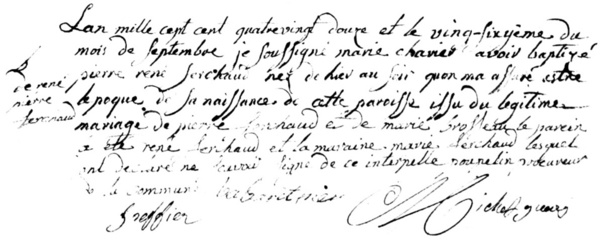 Lan mille cent cent quatrevingt douze et le ving-sixyème du
mois de Septembre je soussigné marie avoir baptizé
pierre rené Serchaud nez de hier au Soir quon ma assuré estre
lepoque de Sa naissance de cette paroisse issu du legitime
mariage de pierre et de marie le parein
a été rené Serchaud et la maraine marie Serchaud lesquel
ont declaré ne Savoir Signé de ce interpellé
de rené
pierre
Serchaud
la commune
Greffier
Michel